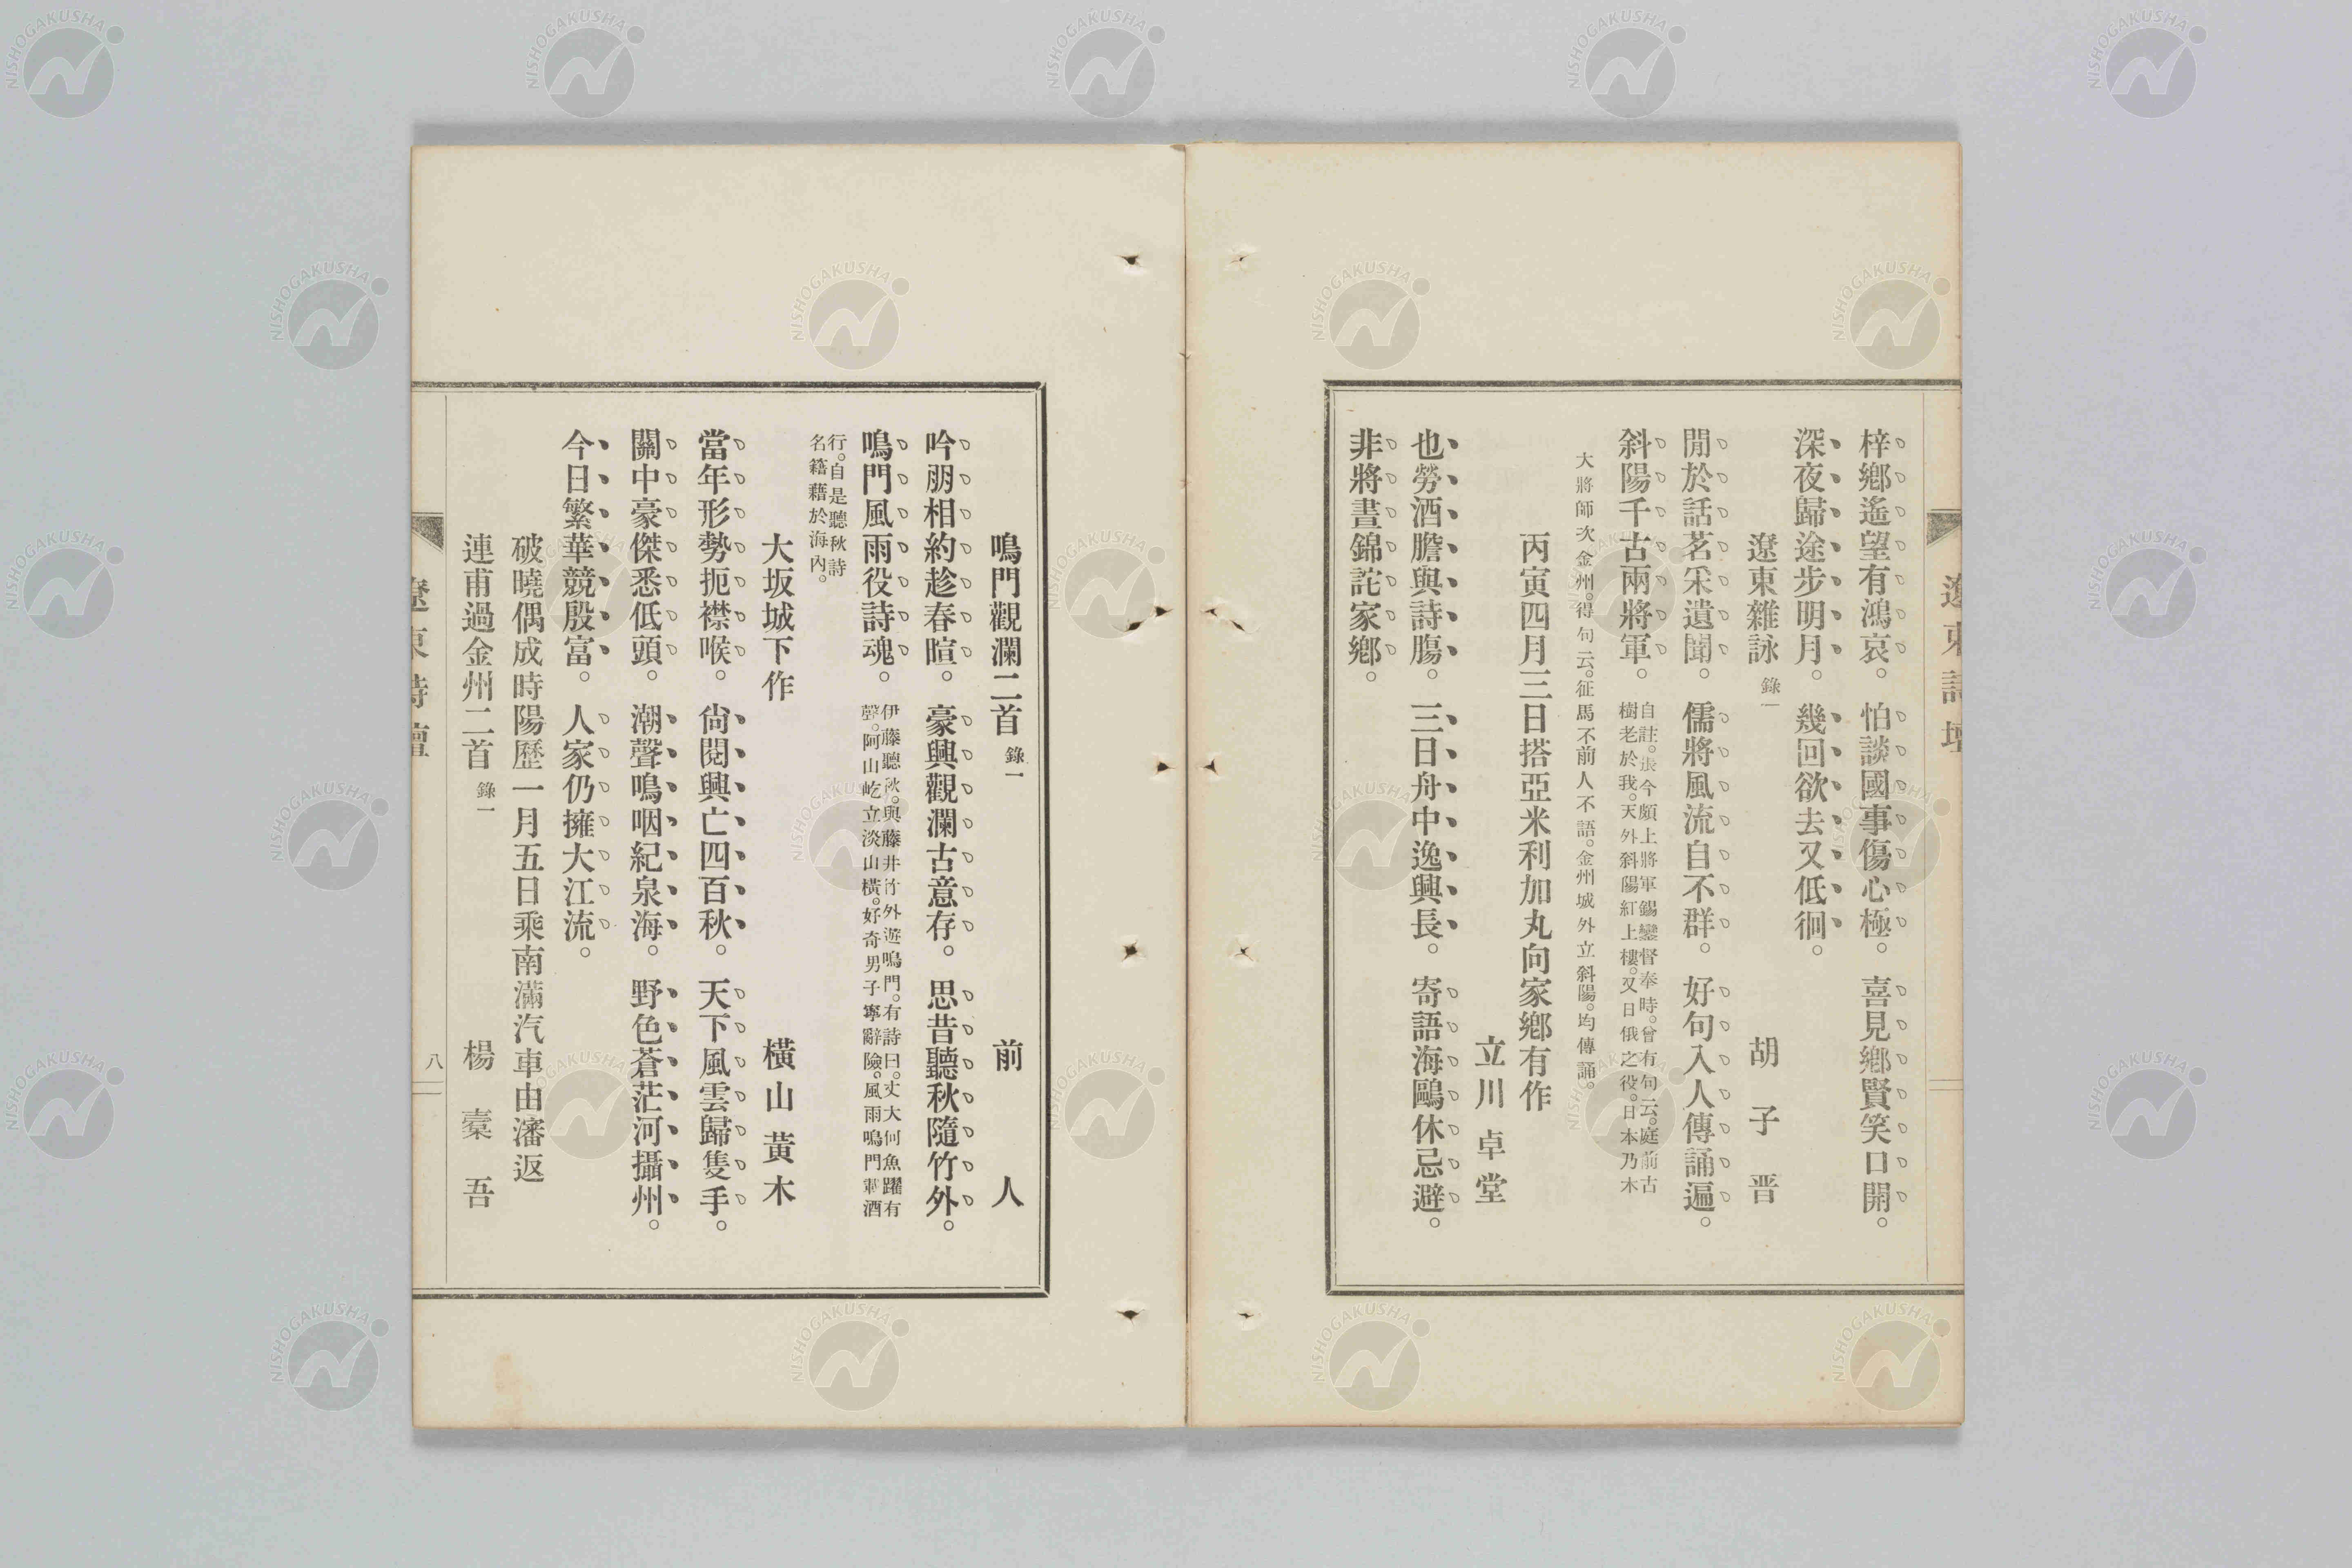 遼東詩壇
梓鄉遙望有鴻哀。怕談國事傷心極。喜見鄉賢笑口開。
深夜歸途步明月。幾回欲去又低徊。
遼東雜詠 錄一 胡子晋
閒於話茗采遺聞。儒將風流自不群。好句入人傳誦遍。
斜陽千古兩將軍。自註。張今頗上將軍錫鑾督奉時。曾有句云。庭前古
樹老於我。天外斜陽紅上樓。又日俄之役。日本乃木
大將師次金州。得句云。征馬不前人不語。金州城外立斜陽。均傳誦。
丙寅四月三日搭亞米利加丸向家鄉有作
立川卓堂
也勞酒膽與詩膓。三日舟中逸興長。寄語海鷗休忌避。
非將晝錦詫家鄉。
鳴門觀瀾二首 錄一 前人
吟朋相約趁春暄。豪興觀瀾古意存。思昔聽秋隨竹外。
鳴門風雨役詩魂。伊藤聽秋。與藤井竹外遊鳴門。有詩曰。丈大何魚躍有
聲。阿山屹立淡山橫。好奇男子寧辭險。風雨鳴門載酒
行。自是聽秋詩
名籍藉於海內。
大坂城下作 橫山黃木
當年形勢扼襟喉。尙閱興亡四百秋。天下風雲歸隻手。
關中豪傑悉低頭。潮聲鳴咽紀泉海。野色蒼茫河攝州。
今日繁華競殷富。人家仍擁大江流。
破曉偶成時陽歷一月五日乘南滿汽車由瀋返
連甫過金州二首 錄一 楊橐吾
遼東詩壇
八
NISHOGAKUSHA